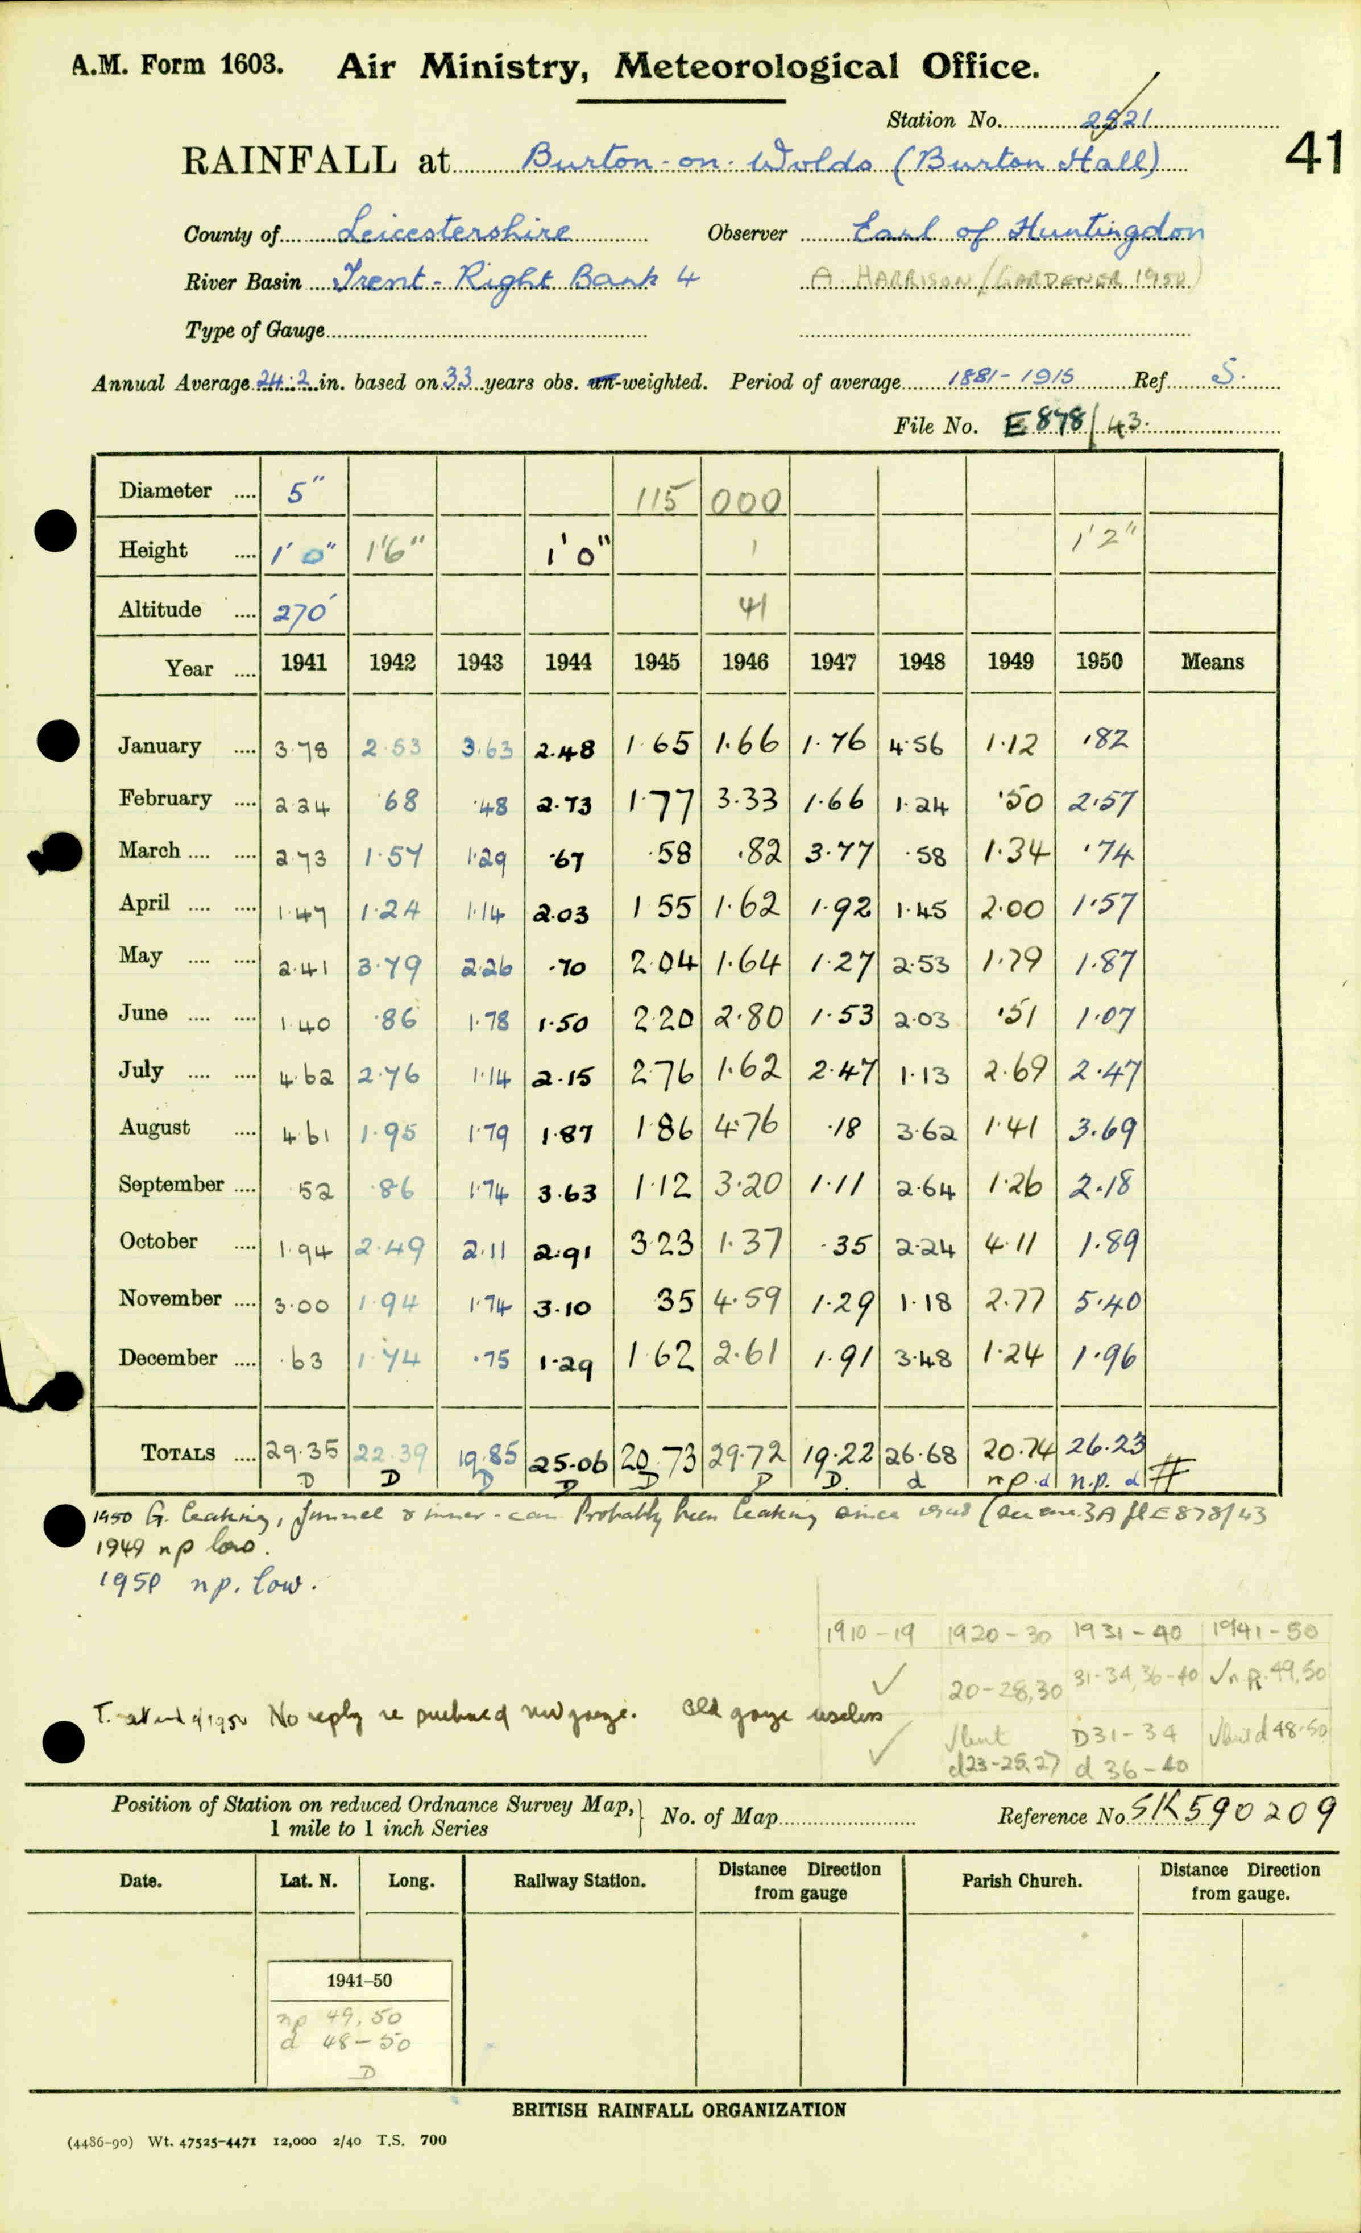 A.M. Form 1603. Air Ministry, Meteorological Office.
Station No. 2821
41
RAINFALL at Burton-on-Wolds (Burton Hall)
County of Leicestershire Observer Earl of Huntingdon
River Basin Trent - Right Bank 4 A HARRISON (GARDENER 1950)
Type of Gauge
Annual Average 24.2 in. based on 33 years obs. un-weighted. Period of average 1881-1915 Ref S.
File No. E878/43.
Diameter .... 5" 115 000
Height .... 1' 0" 1'6" 1'0" 1 1'2"
Altitude .... 270' 41
Year .... 1941 1942 1943 1944 1945 1946 1947 1948 1949 1950 Means
January .... 3.78 2.53 3.63 2.48 1.65 1.66 1.76 4.56 1.12 .82
February .... 2.24 .68 .48 2.73 1.77 3.33 1.66 1.24 .50 2.57
March .... .... 2.73 1.57 1.29 .67 .58 .82 3.77 .58 1.34 .74
April .... .... 1.47 1.24 1.14 2.03 1.55 1.62 1.92 1.45 2.00 1.57
May .... .... 2.41 3.79 2.26 .70 2.04 1.64 1.27 2.53 1.79 1.87
June .... .... 1.40 .86 1.78 1.50 2.20 2.80 1.53 2.03 .51 1.07
July .... .... 4.62 2.76 1.14 2.15 2.76 1.62 2.47 1.13 2.69 2.47
August .... 4.61 1.95 1.79 1.87 1.86 4.76 .18 3.62 1.41 3.69
September .... .52 .86 1.74 3.63 1.12 3.20 1.11 2.64 1.26 2.18
October .... 1.94 2.49 2.11 2.91 3.23 1.37 .35 2.24 4.11 1.89
November .... 3.00 1.94 1.74 3.10 35 4.59 1.29 1.18 2.77 5.40
December .... .63 1.74 .75 1.29 1.62 2.61 1.91 3.48 1.24 1.96
TOTALS .... 29.35 22.39 19.85 25.06 20.73 29.72 19.22 26.68 20.74 26.23
D D D D D D D. d n p. d n.p. d #
1950 G. leaking, funnel & inner-can Probably been leaking since 1948 (see enc 3A fl E878/43
1949 n p low.
1950 n p. low.
1910-19 1920-30 1931-40 1941-50
✓ 20-28,30 31-34,36-40 ✓n p. 49,50
✓ d23-25,27 D31-34 d 36-40 d 48-50
1950 No reply re purchase of new gauge. Old gauge useless
Position of Station on reduced Ordnance Survey Map, } No. of Map Reference No. SK590209
1 mile to 1 inch Series
Date. Lat. N. Long. Railway Station. Distance Direction from gauge Parish Church. Distance Direction from gauge.
1941-50
np 49,50
d 48-50
D
BRITISH RAINFALL ORGANIZATION
(4486-90) Wt. 47525-4471 12,000 2/40 T.S. 700